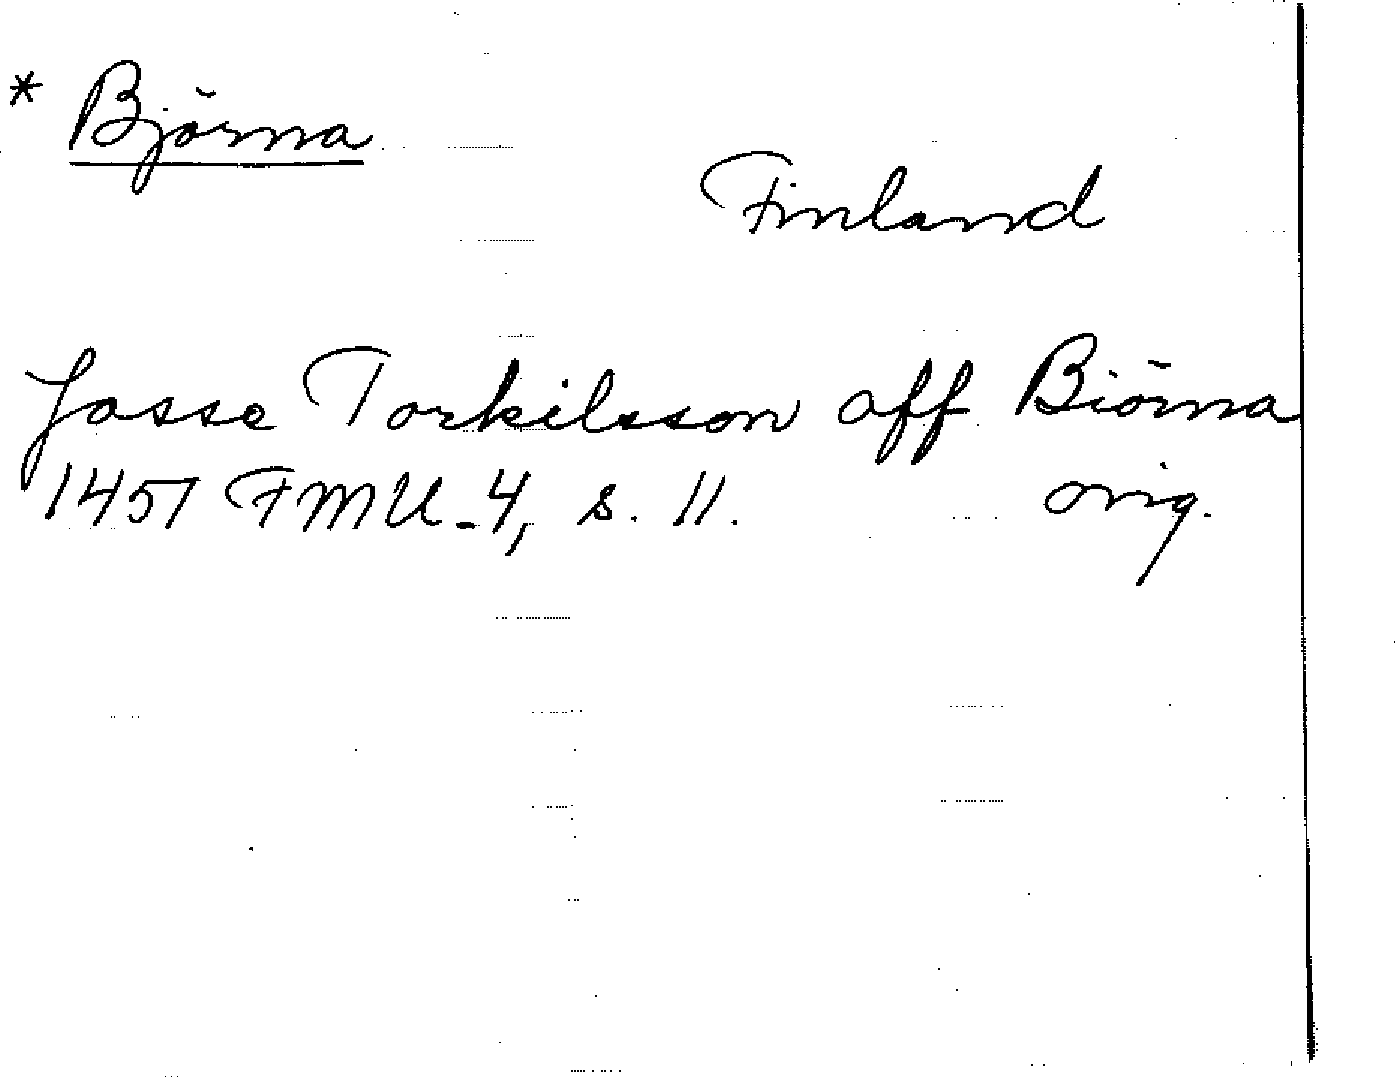 * Björna
Finland
Josse Torkilsson aff Biörna
1451 FMU 4, s. 11. orig.